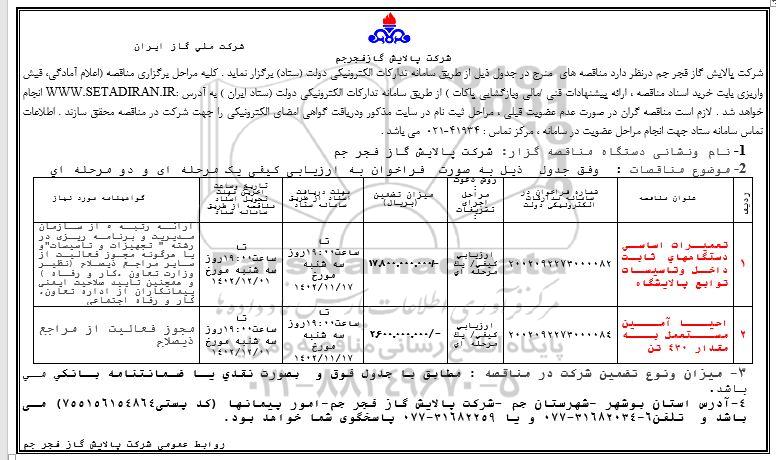 شرکت ملی گاز ایران
شرکت پالایش گازفجرجم
شرکت پالایش گاز فجر جم درنظر دارد مناقصه های مندرج در جدول ذیل از طریق سامانه تدارکات الکترونیکی دولت (ستاد) برگزار نماید . کلیه مراحل برگزاری مناقصه (اعلام آمادگی، فیش
واریزی بابت خرید اسناد مناقصه ، ارائه پیشنهادات فنی /مالی وبازگشایی پاکات ) از طریق سامانه تدارکات الکترونیکی دولت (ستاد ایران ) به آدرس :WWW.SETADIRAN.IR انجام
خواهد شد . لازم است مناقصه گران در صورت عدم عضویت قبلی ، مراحل ثبت نام در سایت مذکور ودریافت گواهی امضای الکترونیکی را جهت شرکت در مناقصه محقق سازند . اطلاعات
تماس سامانه ستاد جهت انجام مراحل عضویت در سامانه ، مرکز تماس : ۴۱۹۳۴-۰۲۱ می باشد .
1- نام ونشانی دستگاه مناقصه گزار: شرکت پالایش گاز فجر جم
2- موضوع مناقصات : وفق جدول ذیل به صورت فراخوان به ارزیابی کیفی یک مرحله ای و دو مرحله ای
ردیف
عنوان مناقصه
شماره فراخوان در
سامانه تدارکات
الکترونیکی دولت
روش دعوت
:
مراحل
اجرای
تشریفات
میزان تضمین
(بریال)
مهلت دریافت
اسناد از طریق
سامانه ستاد
تاریخ وساعت
آخرین مهلت
تحویل اسناد
مناقصه از طریق
سامانه ستاد
گواهینامه مورد نیاز
۱
تعمیرات اساسی
دستگاههای ثابت
داخل وتاسیسات
توابع پالایشگاه
۲۰۰۲۰۹۲۲۷۳۰۰۰۰۸۲
ارزیابی
کیفی/ یک
مرحله ای
۱۷.۸۰۰.۰۰۰.۰۰۰/-
تا
ساعت۱۹:۰۰روز
سه شنبه
مورخ
۱۴۰۲/۱۱/۱۷
تا
ساعت۱۹:۰۰روز
سه شنبه مورخ
۱۴۰۲/۱۲/۰۱
ارائه رتبه ۵ از سازمان
مدیریت و برنامه ریزی در
رشته " تجهیزات و تاسیسات"و
یا هرگونه مجوز فعالیت از
سایر مراجع ذیصلاح (نظیر
وزارت تعاون ،کار و رفاه )
و همچنین تایید صلاحیت ایمنی
پیمانکاران از اداره تعاون،
کار و رفاه اجتماعی
۲
احیا آمین
مستعمل به
مقدار ۴۳۰ تن
۲۰۰۲۰۹۲۲۷۳۰۰۰۰۸۴
ارزیابی
کیفی/ یک
مرحله ای
۲.۶۰۰.۰۰۰.۰۰۰/-
تا
ساعت۱۹:۰۰روز
سه شنبه
مورخ
۱۴۰۲/۱۱/۱۷
تا
ساعت۱۹:۰۰روز
سه شنبه مورخ
۱۴۰۲/۱۲/۰۱
مجوز فعالیت از مراجع
ذیصلاح
۳- میزان ونوع تضمین شرکت در مناقصه : مطابق با جدول فوق و بصورت نقدی یا ضمانتنامه بانکی می
باشد.
۴-آدرس استان بوشهر -شهرستان جم -شرکت پالایش گاز فجر جم-امور پیمانها (کد پستی۷۵۵۱۵۶۱۵۴۸۶۴) می
باشد و تلفن۶-۳۱۶۸۲۰۳۴-۰۷۷ و یا ۳۱۶۸۲۲۵۹-۰۷۷ پاسخگوی شما خواهد بود.
روابط عمومی شرکت پالایش گاز فجر جم
مرکز فرآوری اطلاعات پارس نماد داده ها
پایگاه اطلاع رسانی مناقصه
۰۲۱-۸۸۳۴۹۶۷۰-۵